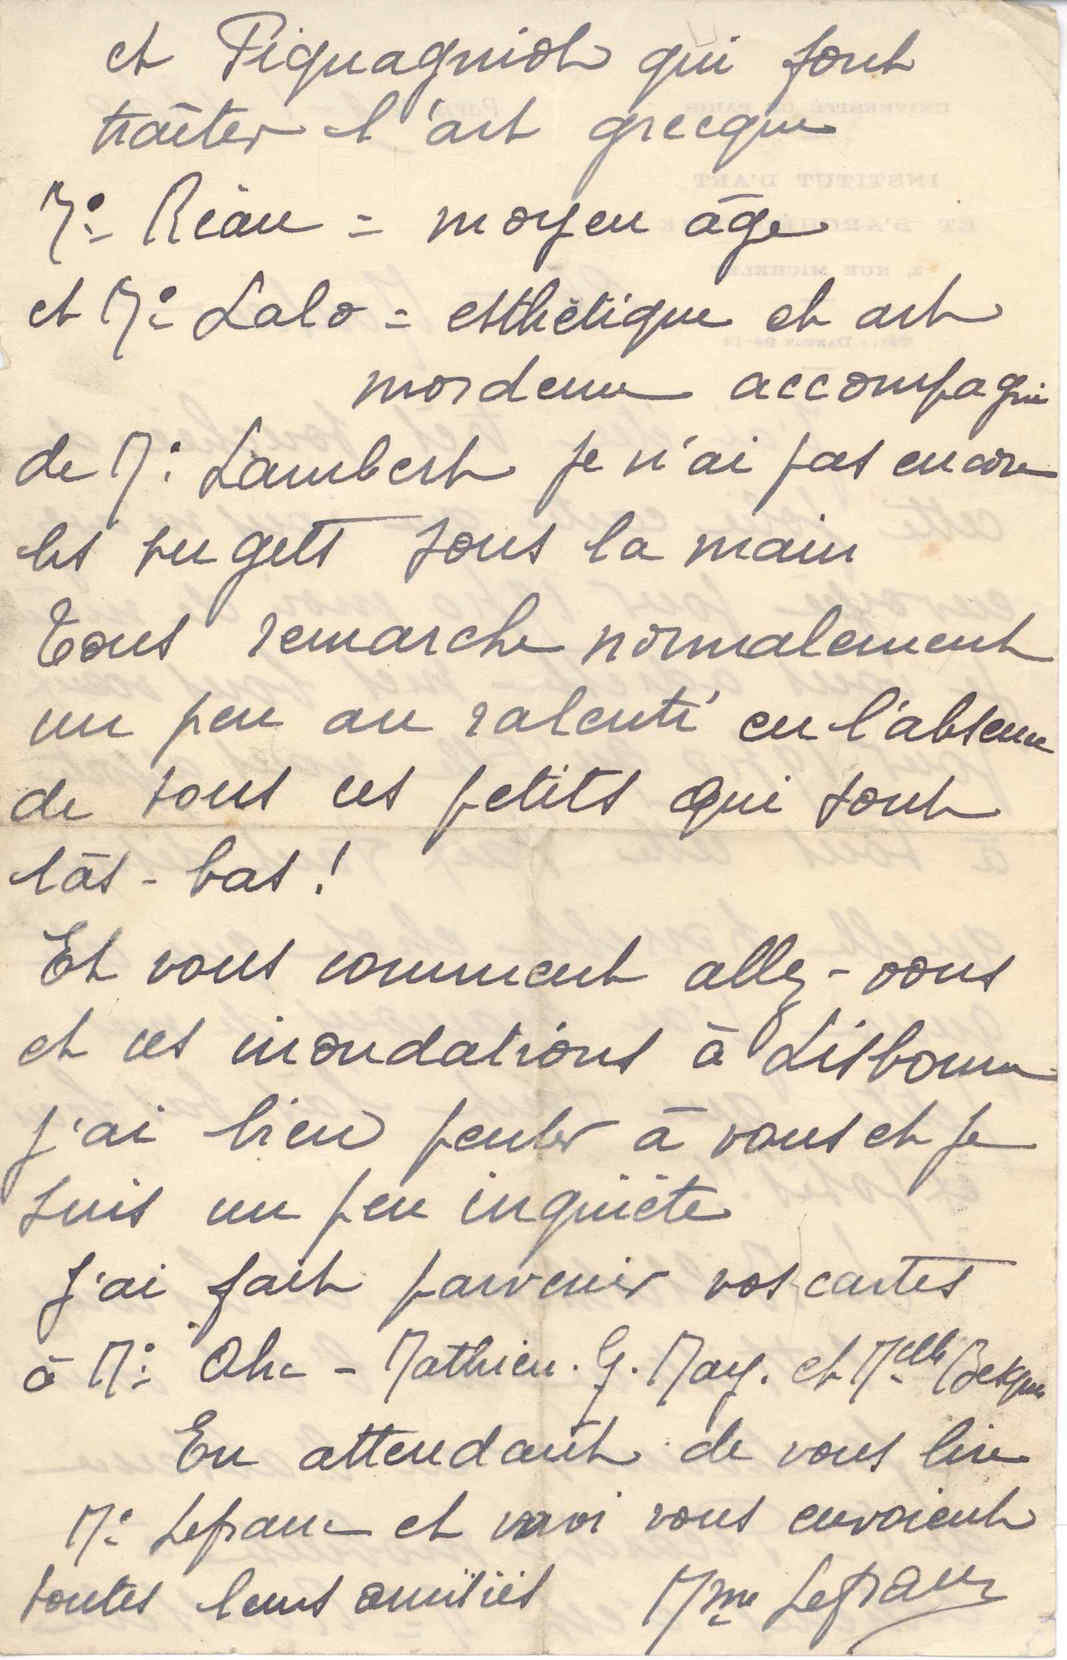 et Piquagniol qui font
traîter l'art grecque
Mr. Réau = moyen âge
et Mr. Lalo = esthètique et art
morderne accompagné
de Mr. Lambert je n'ai pas encore
les sugets sous la main
Tous remarche normalement
un peu au ralenti en l'absence
de tous ces petits qui sont
lâs-bas !
Et vous comment allez-vous
et ces inondations à Lisbonne
J'ai bien penser à vous et je
suis un peu inquiète
J'ai fait parvenir vos cartes
à Mr. - Mathieu. G. May. et Melle
En attendant de vous lire
Mr. Lefranc et moi vous envoient
toutes leurs amitiés Mme Lefranc
UNIVERSITÉ DE PARIS
INSTITUT D'ART
ET D'ARCHÉOLOGIE
3, RUE MICHELET